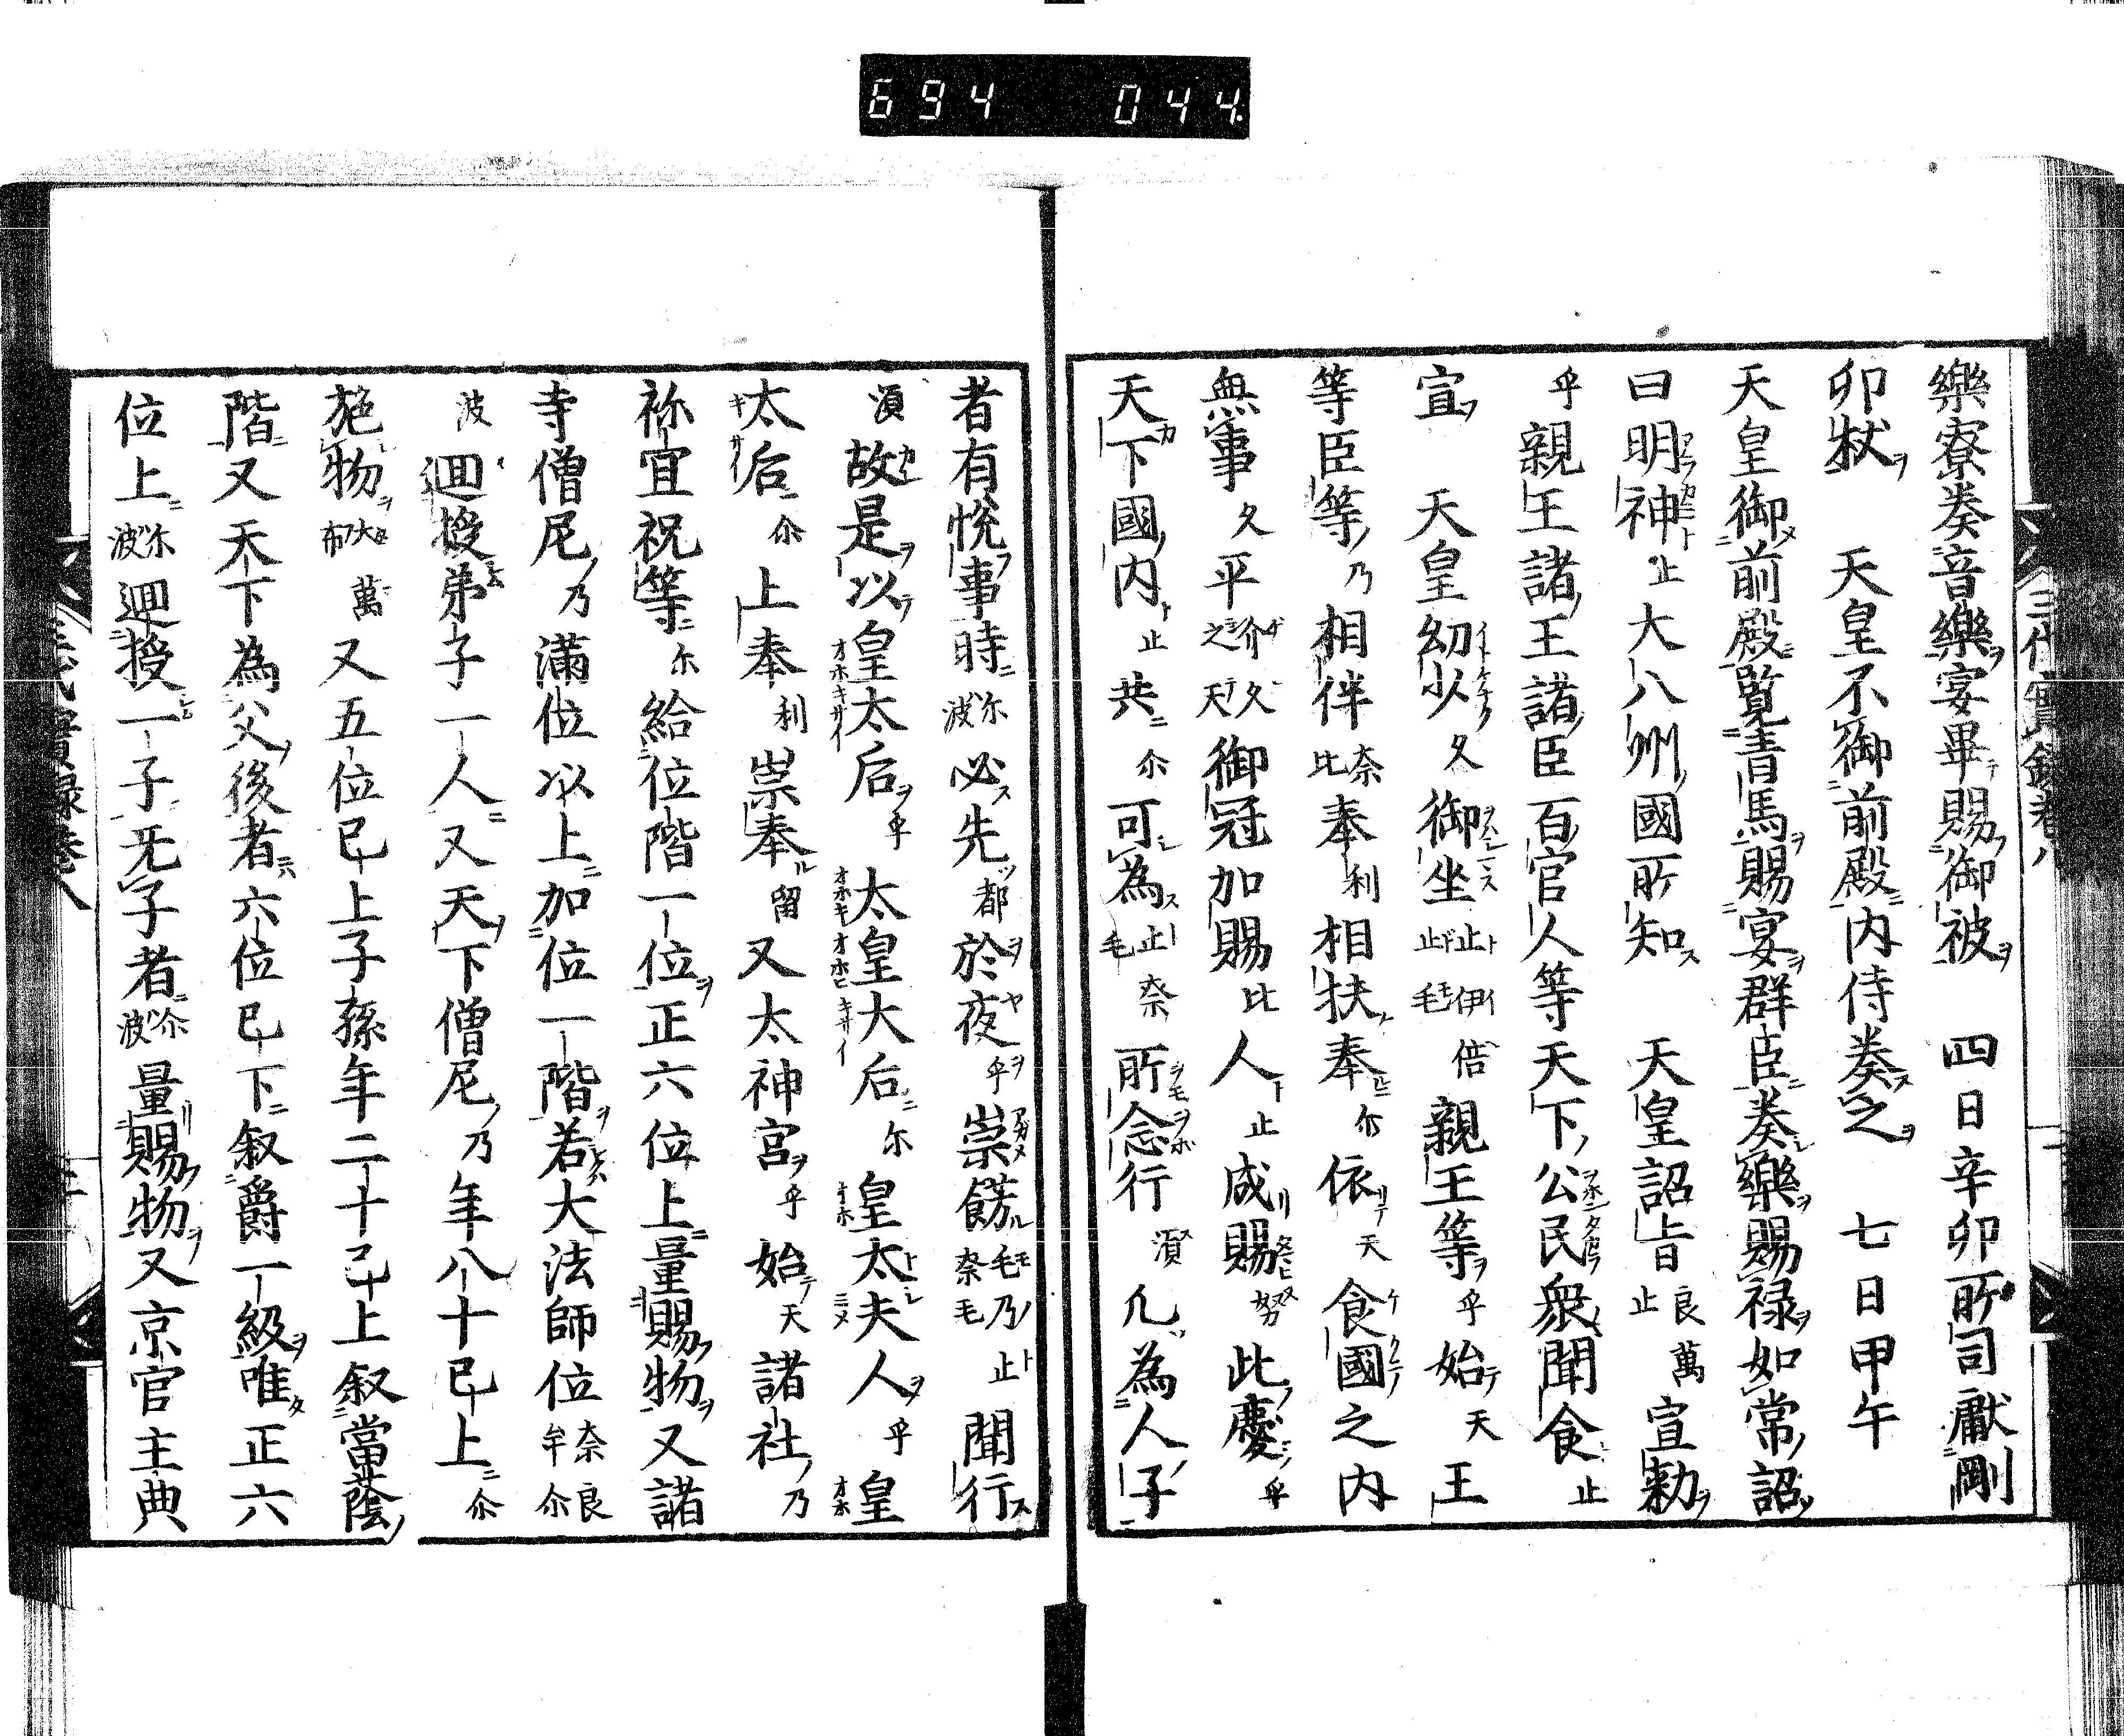 694 044.
樂寮奏音樂宴畢賜御被　四日辛卯所司獻剛
卯杖　天皇不御前殿内侍奏之　七日甲午
天皇御前殿覽青馬賜宴群臣奏樂賜禄如常詔
曰明神止大八州國所知　天皇詔旨良止萬宣勅
乎親王諸王諸臣百官人等天下公民衆聞食止
宣　天皇幼少久御坐止止毛伊倍親王等乎始天王
等臣等乃相伴奈比奉利相扶奉尓依天食國之内
無事久平介之久天御冠加賜比人止成賜努此慶乎
天下國内止共尓可為止毛奈所念行湏凢為人子
者有悅事時尓波必先都於夜乎崇餝毛奈毛乃止聞行
湏故是以皇太后乎太皇大后尓皇太夫人乎皇
太后尓上奉利崇奉留又太神宮乎始天諸社乃
祢宜祝等尓給位階一位正六位上量賜物又諸
寺僧尼乃滿位以上加位一階若大法師位奈牟良尓
波廻授弟子一人又天下僧尼乃年八十已上尓
施物布大萬又五位已上子孫年二十已上叙當蔭
階又天下為父後者六位已下叙爵一級唯正六
位上尓波廻授一子无子者尓波量賜物又京官主典
三代實錄卷八